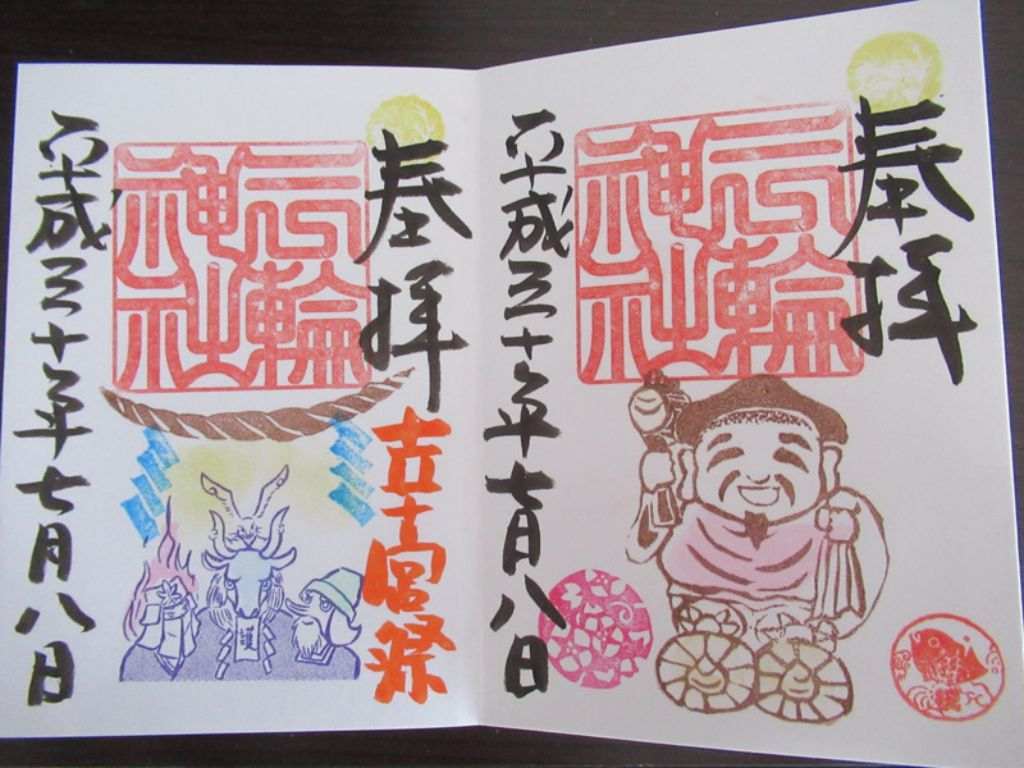 奉拝
三輪
神社
平成三十年七月八日
奉拝
宮祭
三輪
神社
護
平成三十年七月八日